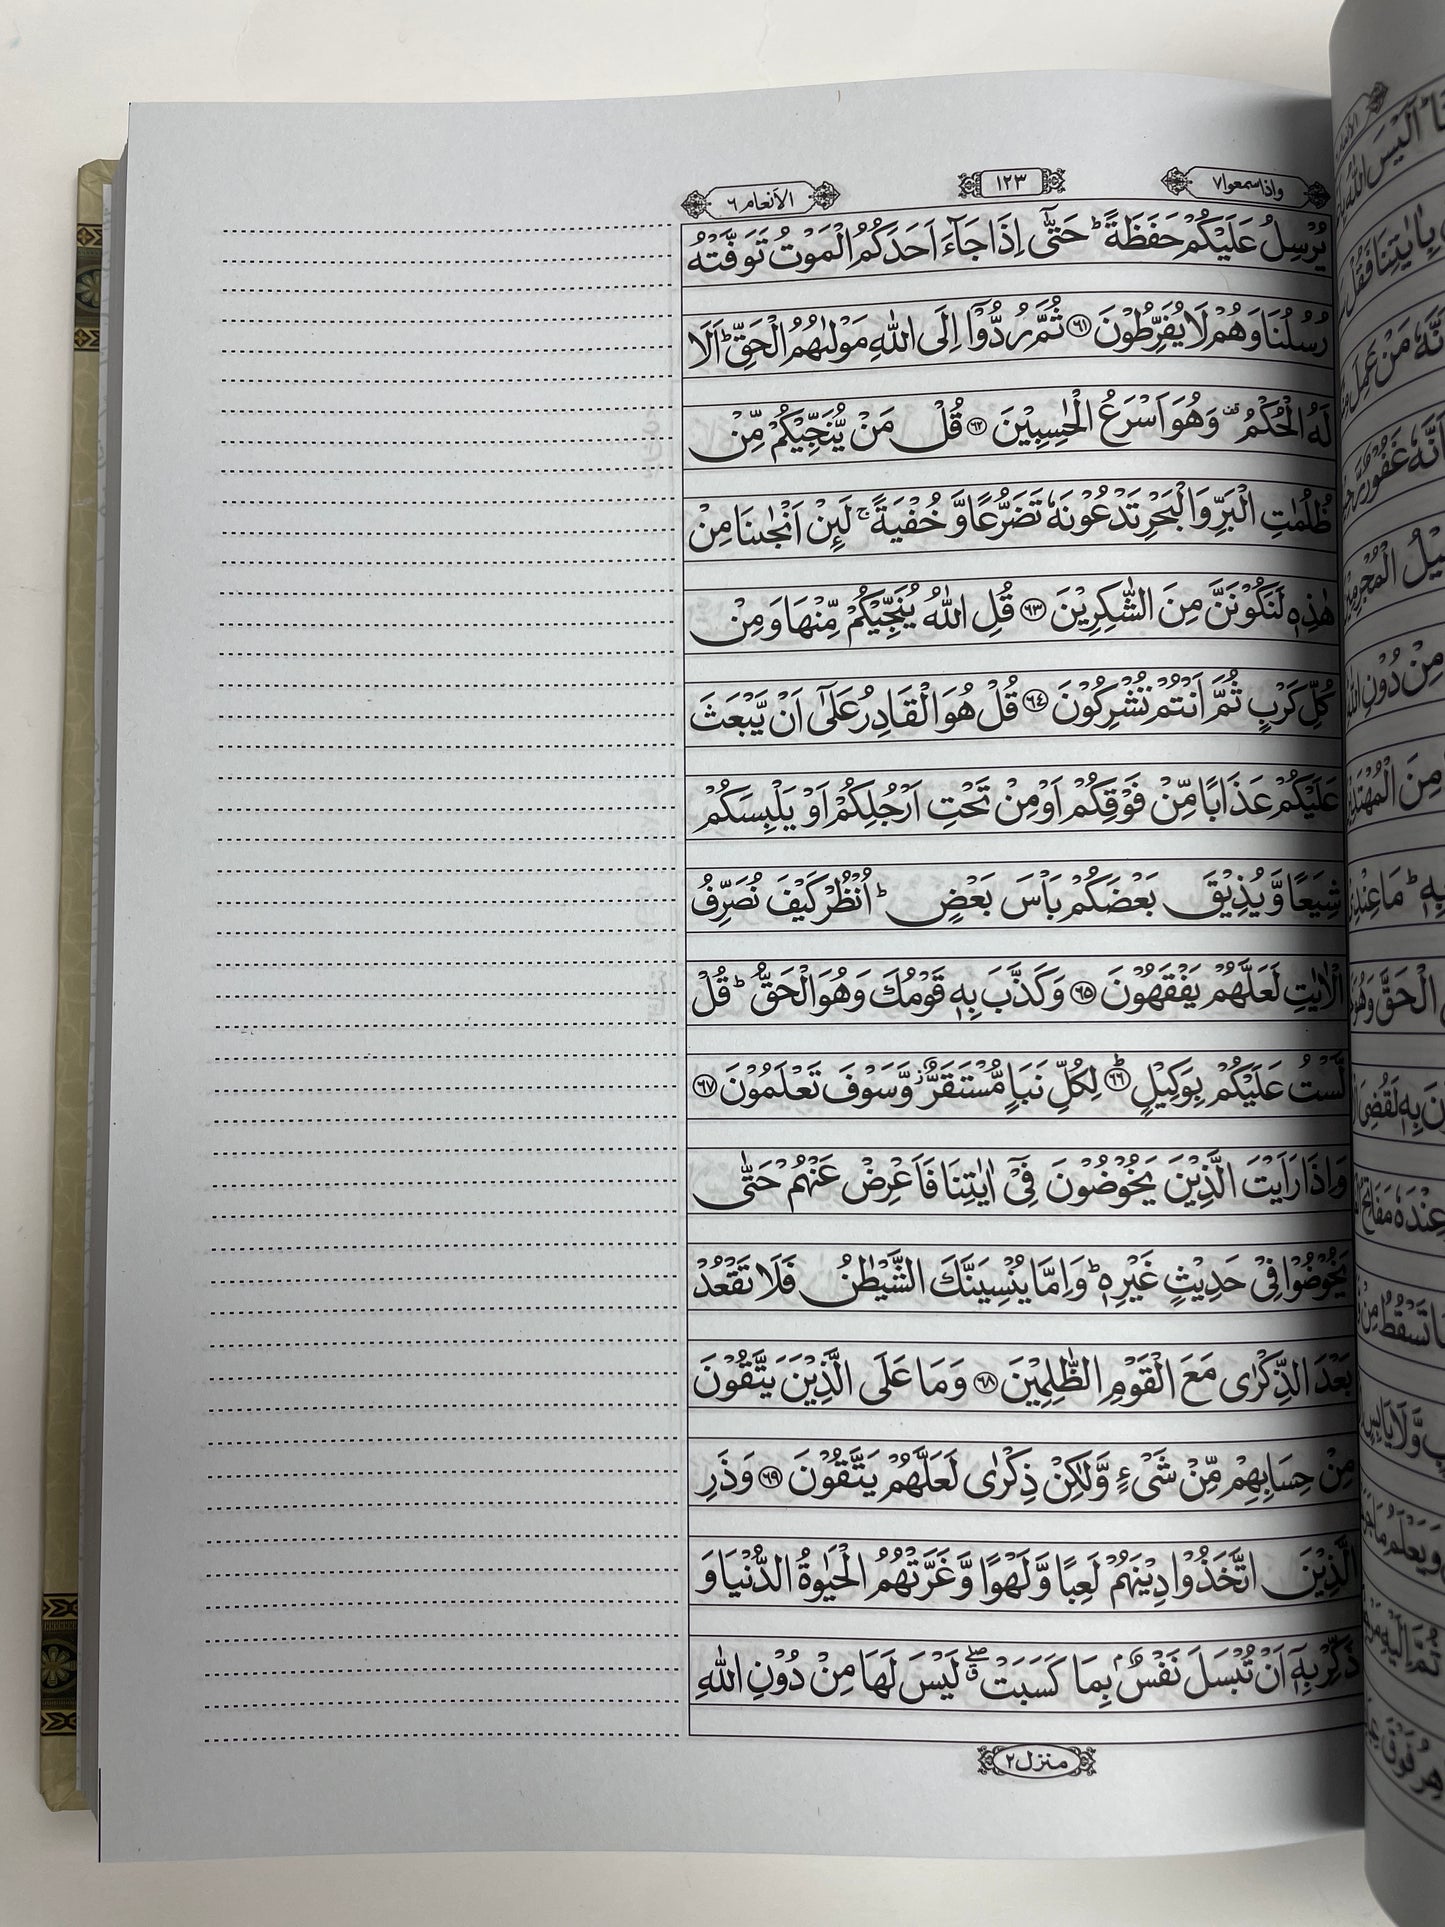 واذاسمعوا٧
١٢٣
الأنعام ٦
يُرْسِلُ عَلَيْكُمْ حَفَظَةً ؕ حَتّٰۤى اِذَا جَآءَ اَحَدَكُمُ الْمَوْتُ تَوَفَّتْهُ
رُسُلُنَا وَهُمْ لَا يُفَرِّطُوْنَ ﴿٦١﴾ ثُمَّ رُدُّوْۤا اِلَى اللّٰهِ مَوْلٰىهُمُ الْحَقِّ ؕ اَلَا
لَهُ الْحُكْمُ ۫ وَهُوَ اَسْرَعُ الْحٰسِبِيْنَ ﴿٦٢﴾ قُلْ مَنْ يُّنَجِّيْكُمْ مِّنْ
ظُلُمٰتِ الْبَرِّ وَالْبَحْرِ تَدْعُوْنَهٗ تَضَرُّعًا وَّ خُفْيَةً ۚ لَىِٕنْ اَنْجٰىنَا مِنْ
هٰذِهٖ لَنَكُوْنَنَّ مِنَ الشّٰكِرِيْنَ ﴿٦٣﴾ قُلِ اللّٰهُ يُنَجِّيْكُمْ مِّنْهَا وَمِنْ
كُلِّ كَرْبٍ ثُمَّ اَنْتُمْ تُشْرِكُوْنَ ﴿٦٤﴾ قُلْ هُوَ الْقَادِرُ عَلٰۤى اَنْ يَّبْعَثَ
عَلَيْكُمْ عَذَابًا مِّنْ فَوْقِكُمْ اَوْ مِنْ تَحْتِ اَرْجُلِكُمْ اَوْ يَلْبِسَكُمْ
شِيَعًا وَّ يُذِيْقَ بَعْضَكُمْ بَاْسَ بَعْضٍ ؕ اُنْظُرْ كَيْفَ نُصَرِّفُ
الْاٰيٰتِ لَعَلَّهُمْ يَفْقَهُوْنَ ﴿٦٥﴾ وَكَذَّبَ بِهٖ قَوْمُكَ وَهُوَ الْحَقُّ ؕ قُلْ
لَّسْتُ عَلَيْكُمْ بِوَكِيْلٍ ﴿٦٦﴾ؕ لِكُلِّ نَبَاٍ مُّسْتَقَرٌّ ؗ وَّسَوْفَ تَعْلَمُوْنَ ﴿٦٧﴾
وَاِذَا رَاَيْتَ الَّذِيْنَ يَخُوْضُوْنَ فِيْۤ اٰيٰتِنَا فَاَعْرِضْ عَنْهُمْ حَتّٰى
يَخُوْضُوْا فِيْ حَدِيْثٍ غَيْرِهٖ ؕ وَاِمَّا يُنْسِيَنَّكَ الشَّيْطٰنُ فَلَا تَقْعُدْ
بَعْدَ الذِّكْرٰى مَعَ الْقَوْمِ الظّٰلِمِيْنَ ﴿٦٨﴾ وَمَا عَلَى الَّذِيْنَ يَتَّقُوْنَ
مِنْ حِسَابِهِمْ مِّنْ شَيْءٍ وَّلٰكِنْ ذِكْرٰى لَعَلَّهُمْ يَتَّقُوْنَ ﴿٦٩﴾ وَذَرِ
الَّذِيْنَ اتَّخَذُوْا دِيْنَهُمْ لَعِبًا وَّ لَهْوًا وَّ غَرَّتْهُمُ الْحَيٰوةُ الدُّنْيَا وَ
ذَكِّرْ بِهٖۤ اَنْ تُبْسَلَ نَفْسٌۢ بِمَا كَسَبَتْ ۖۗ لَيْسَ لَهَا مِنْ دُوْنِ اللّٰهِ
منزل٢